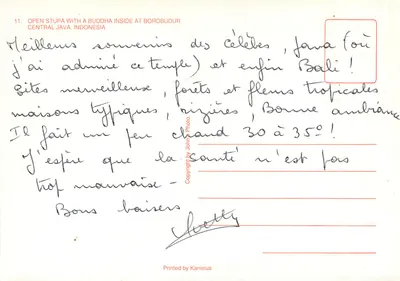 11. OPEN STUPA WITH A BUDDHA INSIDE AT BOROBUDUR
CENTRAL JAVA. INDONESIA
Meilleurs souvenirs des Célèbes, Java (où
j'ai admiré ce temple) et enfin Bali !
Gîtes merveilleuse, forêts et fleurs tropicales
maisons typiques, rizières, Bonne ambiance
Il fait un peu chaud 30 à 35° !
J'espère que la santé n'est pas
trop mauvaise -
Bons baisers
Printed by Kanisius